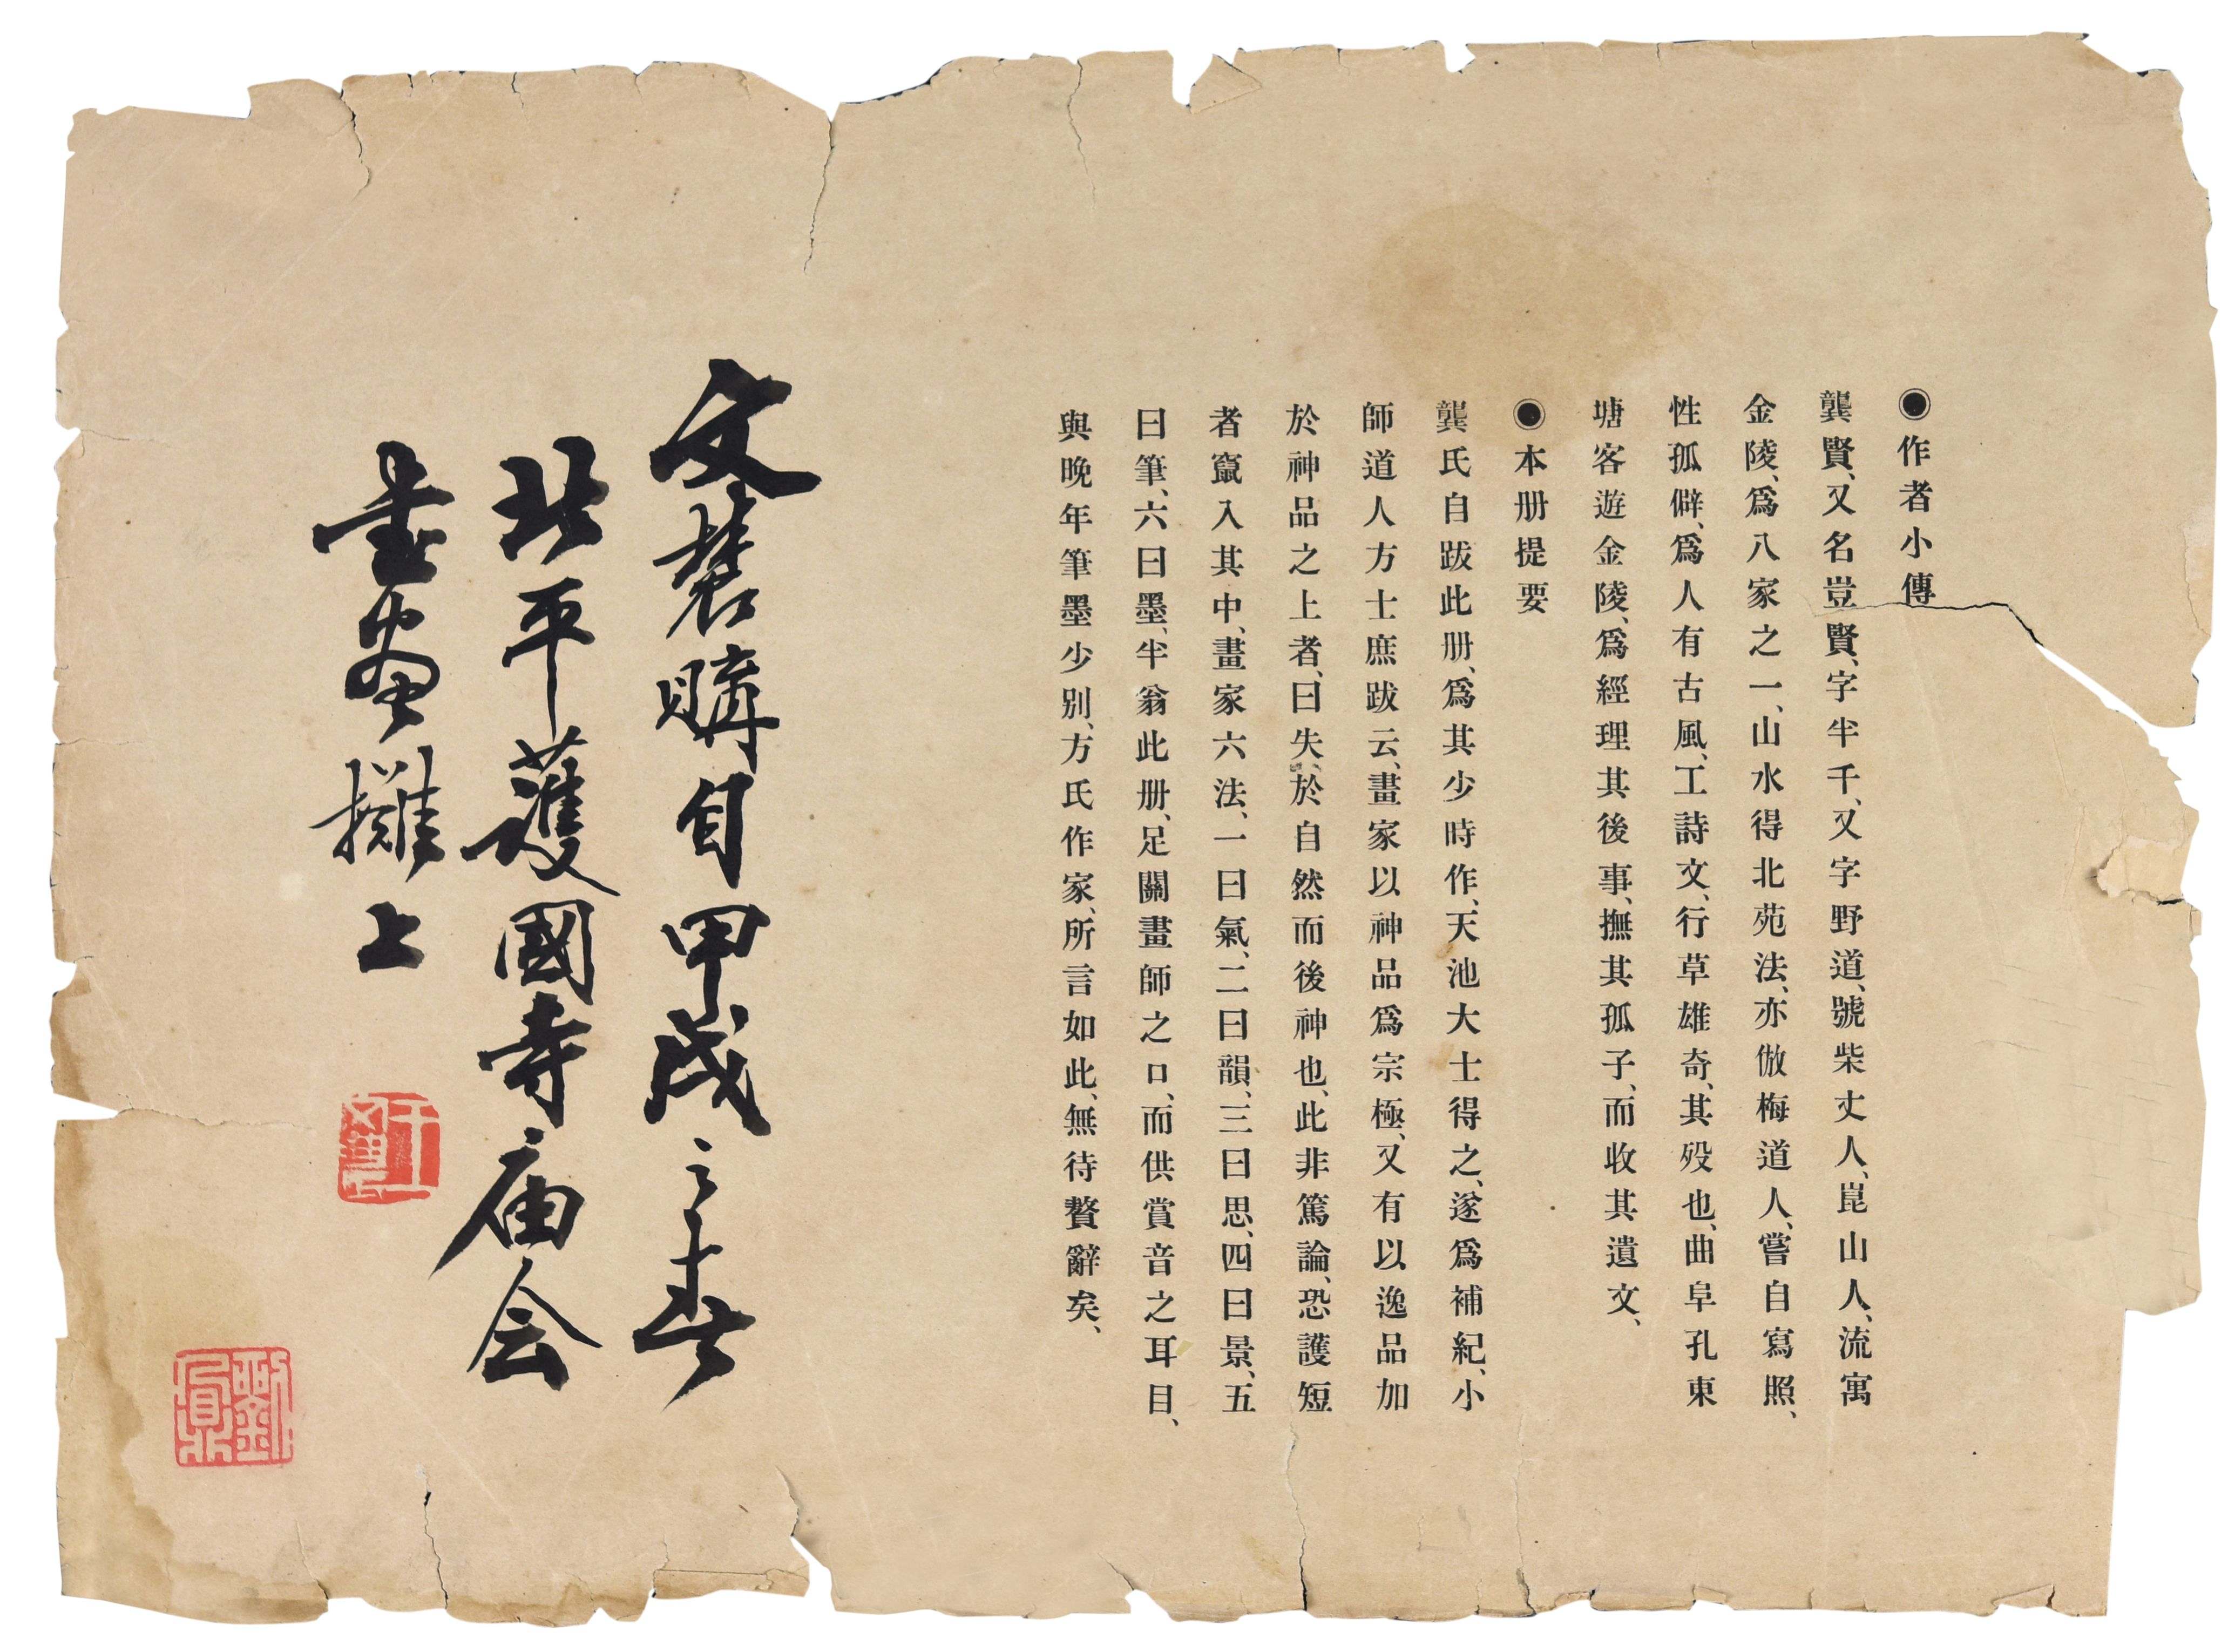 ◉作者小傳
龔賢、又名豈賢、字半千、又字野道、號柴丈人、崑山人、流寓
金陵、爲八家之一、山水得北苑法、亦倣梅道人、嘗自寫照、
性孤僻、爲人有古風、工詩文、行草雄奇、其歿也、曲阜孔東
塘客遊金陵、爲經理其後事、撫其孤子、而收其遺文、
◉本册提要
龔氏自跋此册、爲其少時作、天池大士得之、遂爲補紀、小
師道人方士庶跋云、畫家以神品爲宗極、又有以逸品加
於神品之上者、曰失於自然而後神也、此非篤論、恐護短
者竄入其中、畫家六法、一曰氣、二曰韻、三曰思、四曰景、五
曰筆、六曰墨、半翁此册、足關畫師之口、而供賞音之耳目、
與晚年筆墨少別、方氏作家、所言如此、無待贅辭矣、
文裝購自甲戌之春
北平護國寺庙会
書畫攤上